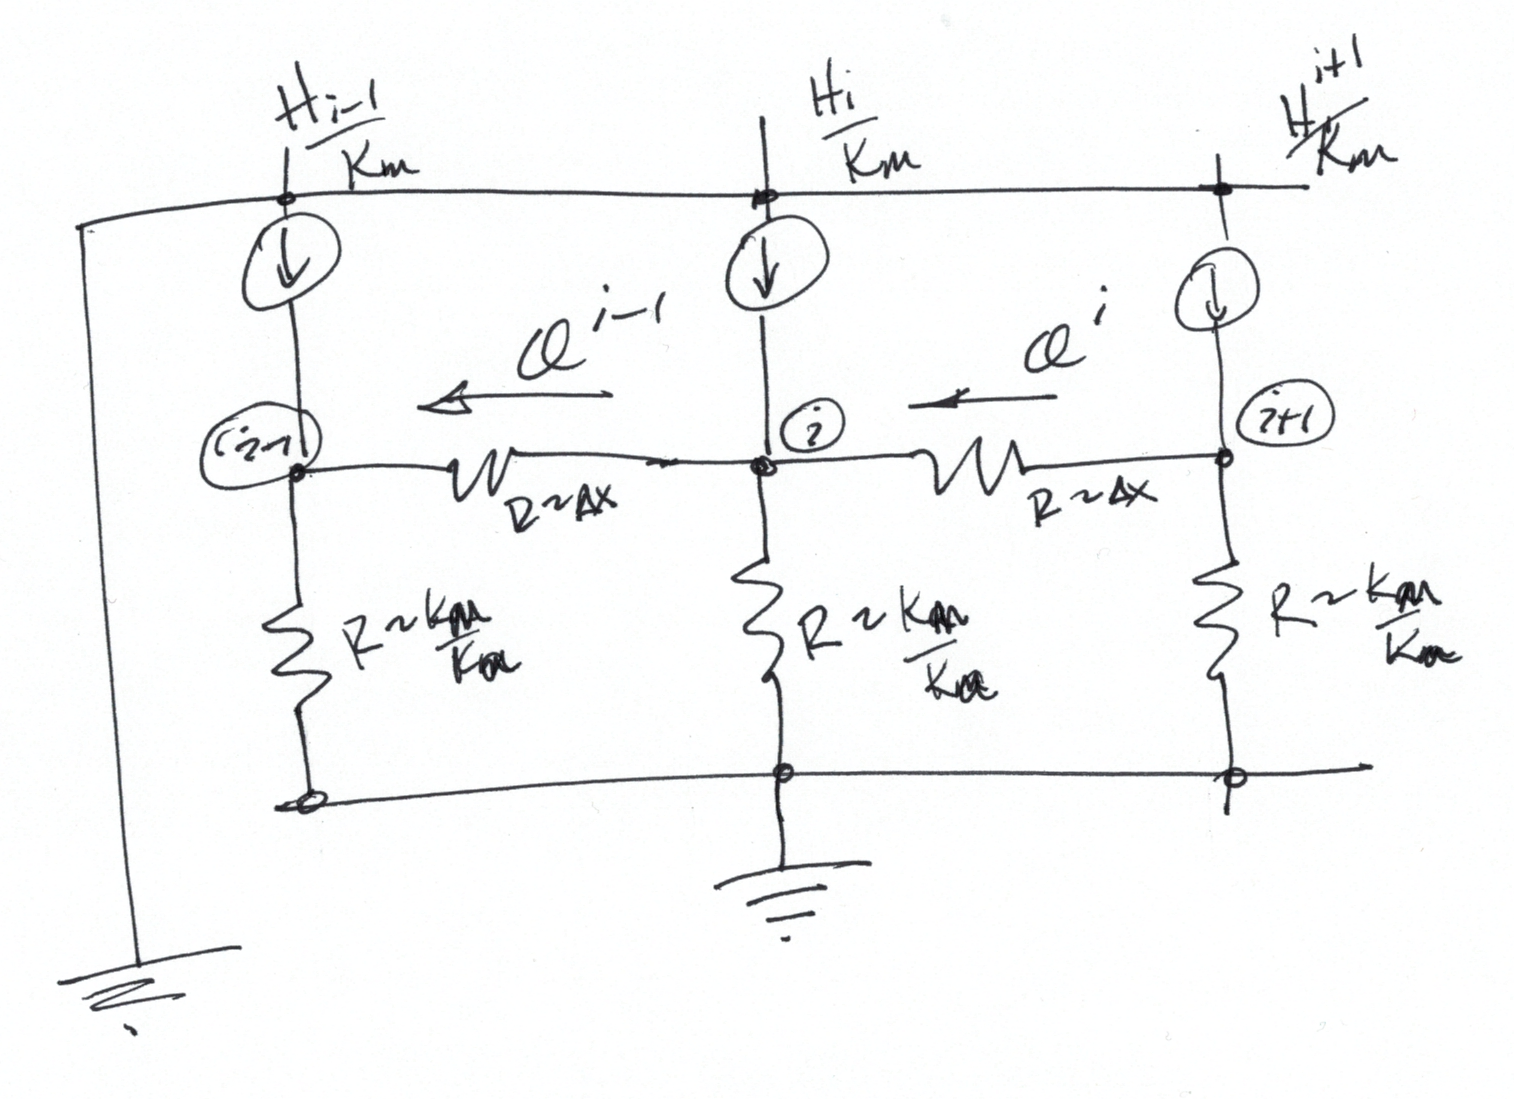 Hi-1/Km
Hi/Km
Hi+1/Km
Qi-1
Qi
i-1
i
i+1
R~Δx
R~Δx
R~Km/Ka
R~Km/Ka
R~Km/Ka